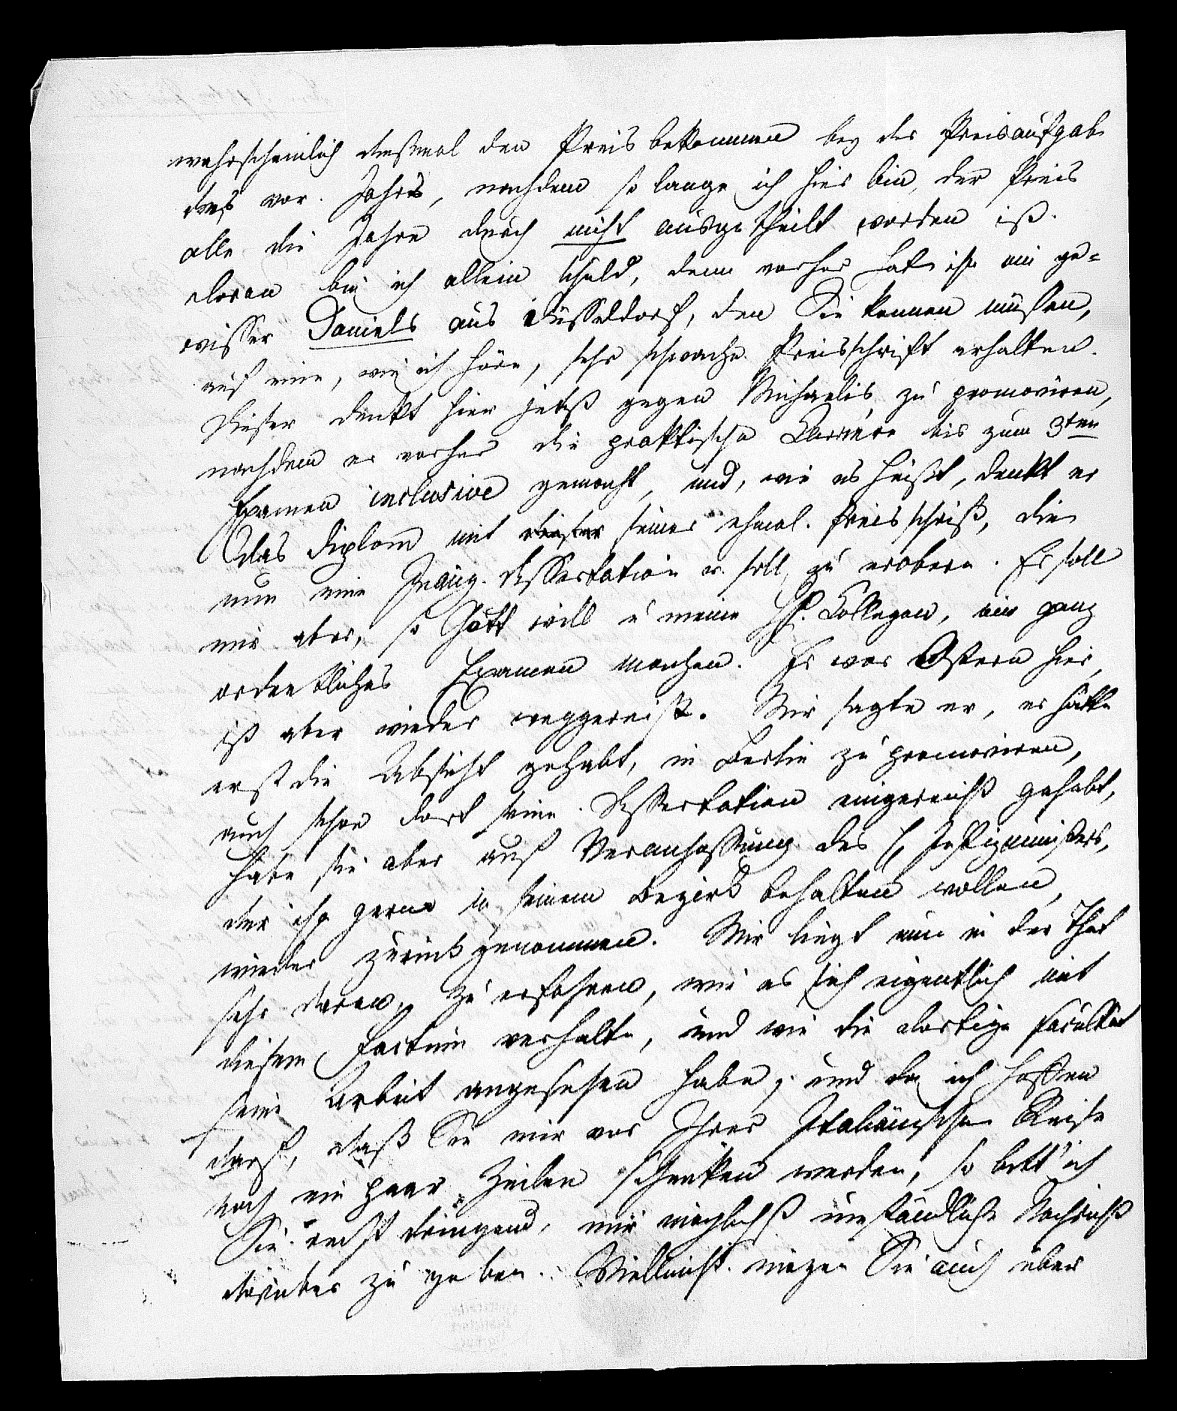 wahrscheinlich diesmal den Preis bekommen bey der Preisaufgabe
des vor. Jahrs, nachdem so lange ich hier bin, der Preis
alle die Jahre durch nicht ausgetheilt worden ist.
daran bin ich allein schuld, denn vorher hat ihn ein ge-
wisser Daniels aus Düsseldorf, den Sie kennen müssen,
auf eine, wie ich höre, sehr schwache Preisschrift erhalten.
Dieser denkt hier jetzt gegen Michaelis zu promoviren,
nachdem er vorher die praktische Carriere bis zum 3ten
Examen inclusive gemacht, und, wie es heißt, denkt er
das Diplom mit dieser seiner ehmal. Preisschrift, die
nun eine Inaug. Dissertation w. soll, zu erobern. Er soll
mir aber, so Gott will u meine HH. Collegen, ein ganz
ordentliches Examen machen. Er war Ostern hier,
ist aber wieder weggereist. Mir sagte er, er hätte
erst die Absicht gehabt, in Berlin zu promoviren,
auch schon dort seine Dissertation eingereicht gehabt,
habe sie aber auf Veranlassung des H Justizministers,
der ihn gerne in seinem Bezirk behalten wollen,
wieder zurückgenommen. Mir liegt nun in der That
sehr daran, zu erfahren, wie es sich eigentlich mit
diesem Factum verhalte, und wie die dortige Facultät
seine Arbeit angesehen habe; und da ich hoffen
darf, daß Sie mir vor Ihrer Italiänischen Reise
noch ein paar Zeilen schenken werden, so bitt' ich
Sie recht dringend, mir möglichst umständliche Nachricht
darüber zu geben. Vielleicht mögen Sie auch über